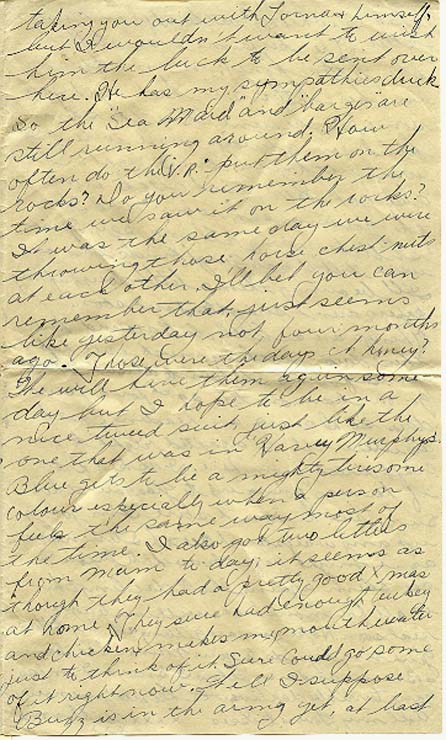 taking you out with Lorna & himself,
but I wouldn't want to wish
him the luck to be sent over
here. He has my sympathies duck
So the "Sea Maid" and "barges" are
still running around. How
often do the V.R. put them on the
rocks? Do you remember the
time we saw it on the rocks?
It was the same day we were
throwing those horse chest-nuts
at each other. I'll bet you can
remember that, just seems
like yesterday not four months
ago. Those were the days eh honey?
We will have them again some
day but I hope to be in a
nice tweed suit just like the
one that was in Harvey Murphy's.
Blue gets to be a mighty tiresome
colour especially when a person
feels the same way most of
the time. I also got two letters
from Mum to day, it seems as
though they had a pretty good Xmas
at home. They sure had enough turkey
and chicken makes my mouth water
just to think of it. Sure could go some
of it right now. Well I suppose
Buzz is in the army yet, at last